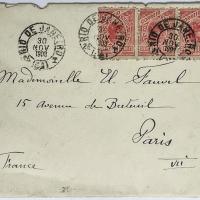 RIO DE JANEIRO
30
NOV
RIO DE JANEIRO
30
NOV
Mademoiselle M Fauvel
15 avenue de Breteuil
Paris
France
VII